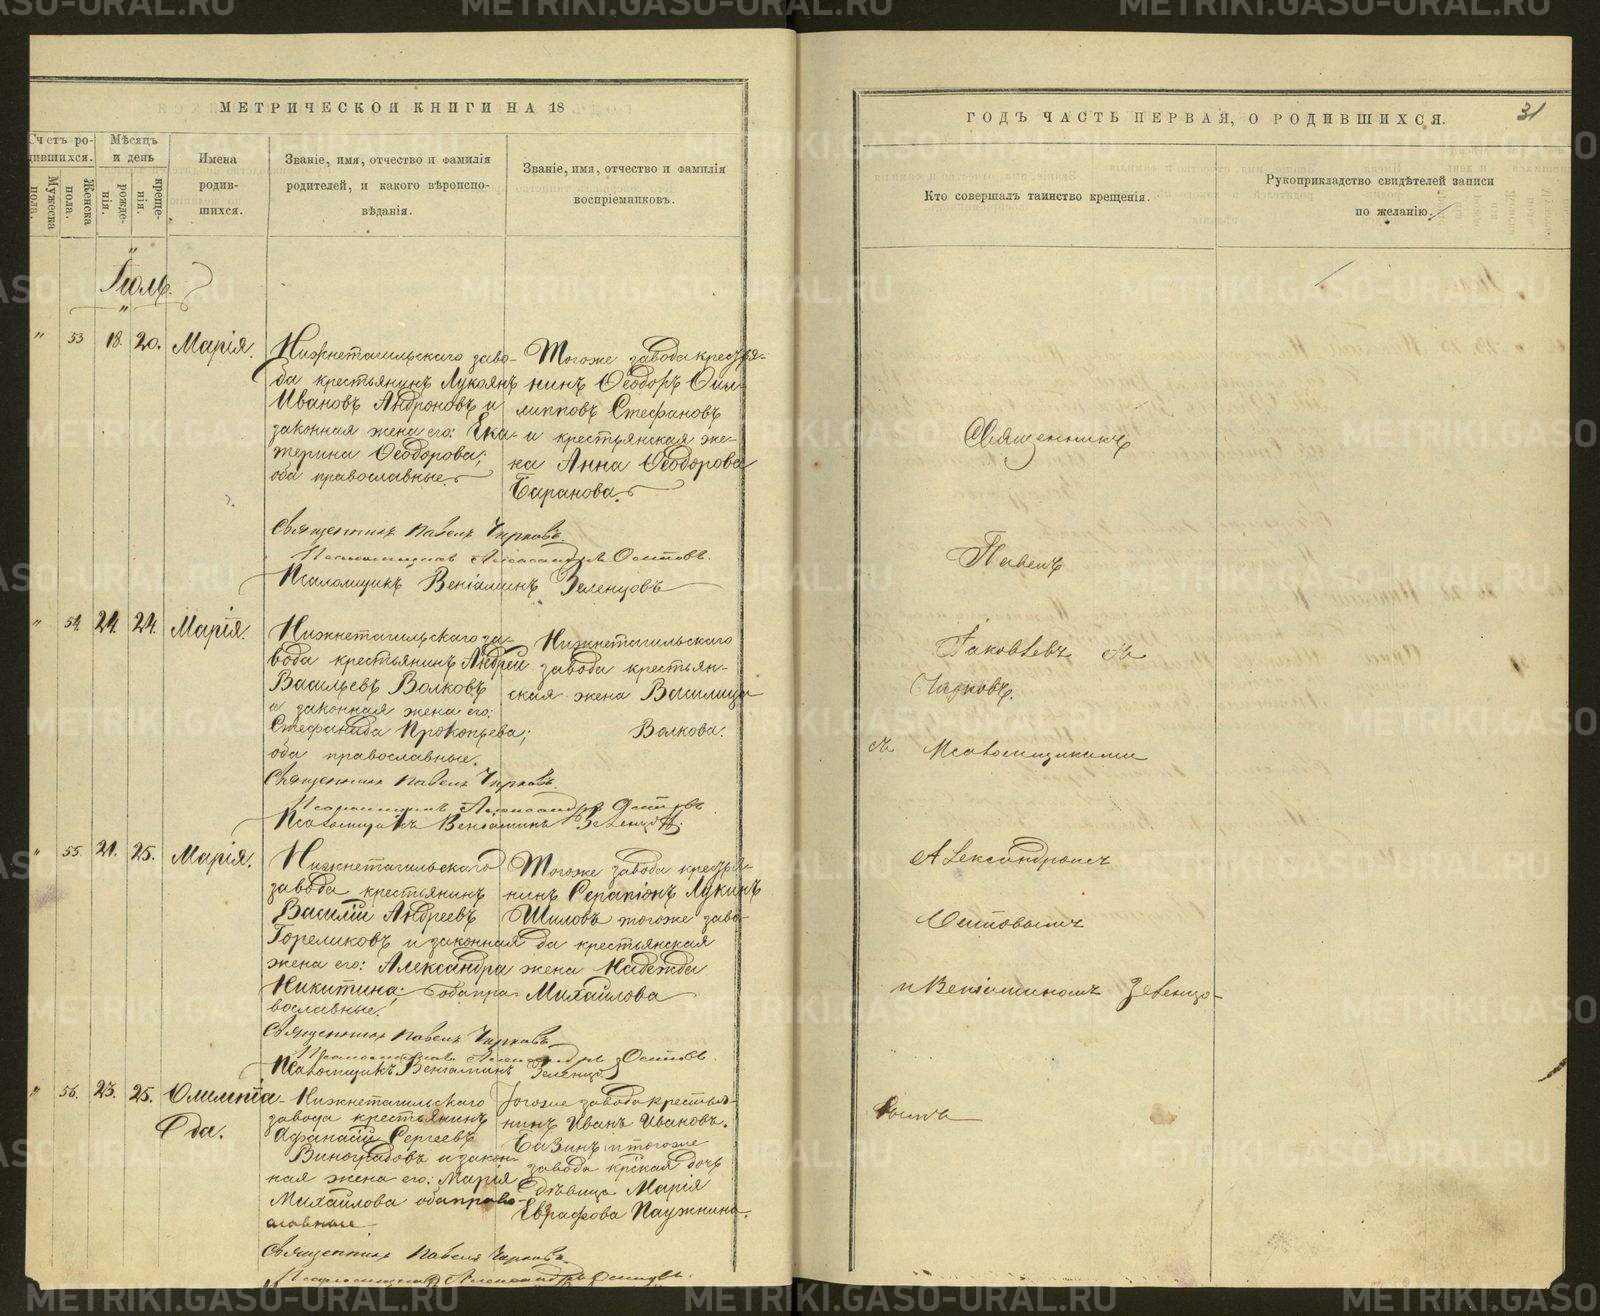 МЕТРИЧЕСКОЙ КНИГИ НА 18
Счетъ родившихся.
Мужеска пола.
Женска пола.
Мѣсяцъ и день
рожденія.
крещенія.
Имена
родив-
шихся.
Званіе, имя, отчество и фамилія
родителей, и какого вѣроиспо-
вѣданія.
Званіе, имя, отчество и фамилія
воспріемниковъ.
Іюль.
" 53 18. 20. Марія.
Нижнетагильскаго заво-
да крестьянинъ Лукоянъ
Ивановъ Андроновъ и
законная жена его: Ека-
терина Ѳеодорова;
оба православные.
Тогоже завода крестья-
нинъ Ѳеодоръ Фил-
липповъ Стефановъ
и крестьянская же-
на Анна Ѳеодорова
Баранова.
Священникъ Павелъ Чирковъ.
Псаломщикъ Александръ Осиповъ.
Псаломщикъ Веніаминъ Зеленцовъ
" 54. 24. 24. Марія.
Нижнетагильскаго за-
вода крестьянинъ Андрей
Васильевъ Волковъ
и законная жена его:
Стефанида Прокопьева;
оба православные.
Нижнетагильскаго
завода крестьян-
ская жена Василиса
Волкова.
Священникъ Павелъ Чирковъ.
Псаломщикъ Александръ Осиповъ
Псаломщикъ Веніаминъ Зеленцовъ.
" 55. 21. 25. Марія.
Нижнетагильскаго
завода крестьянинъ
Василій Андреевъ
Гореликовъ и законная
жена его: Александра
Никитина; оба пра-
вославные.
Тогоже завода крестья-
нинъ Серапіонъ Лукинъ
Шиловъ тогоже заво-
да крестьянская
жена Надежда
Михайлова
Священникъ Павелъ Чирковъ
Псаломщикъ Александръ Осиповъ.
Псаломщикъ Веніаминъ Зеленцовъ
" 56. 23. 25. Олимпіа-
да.
Нижнетагильскаго
завода крестьянинъ
Афанасій Сергеевъ
Виноградовъ и закон-
ная жена его: Марія
Михайлова оба право-
славные
Тогоже завода крестья-
нинъ Иванъ Ивановъ.
Базинъ и тогоже
завода кр͠ская дочь
дѣвица Марія
Евграфова Паужнина.
Священникъ Павелъ Чирковъ.
Псаломщикъ Александръ Осиповъ.
ГОДЪ ЧАСТЬ ПЕРВАЯ, О РОДИВШИХСЯ.
31
Кто совершалъ таинство крещенія.
Рукоприкладство свидѣтелей записи
по желанію.
Священникъ
Павелъ
Іаковлевъ
Чирковъ.
съ Псаломщиками
Александромъ
Осиповымъ
и Веніаминомъ Зеленцо-
METRIKI.GASO-URAL.RU